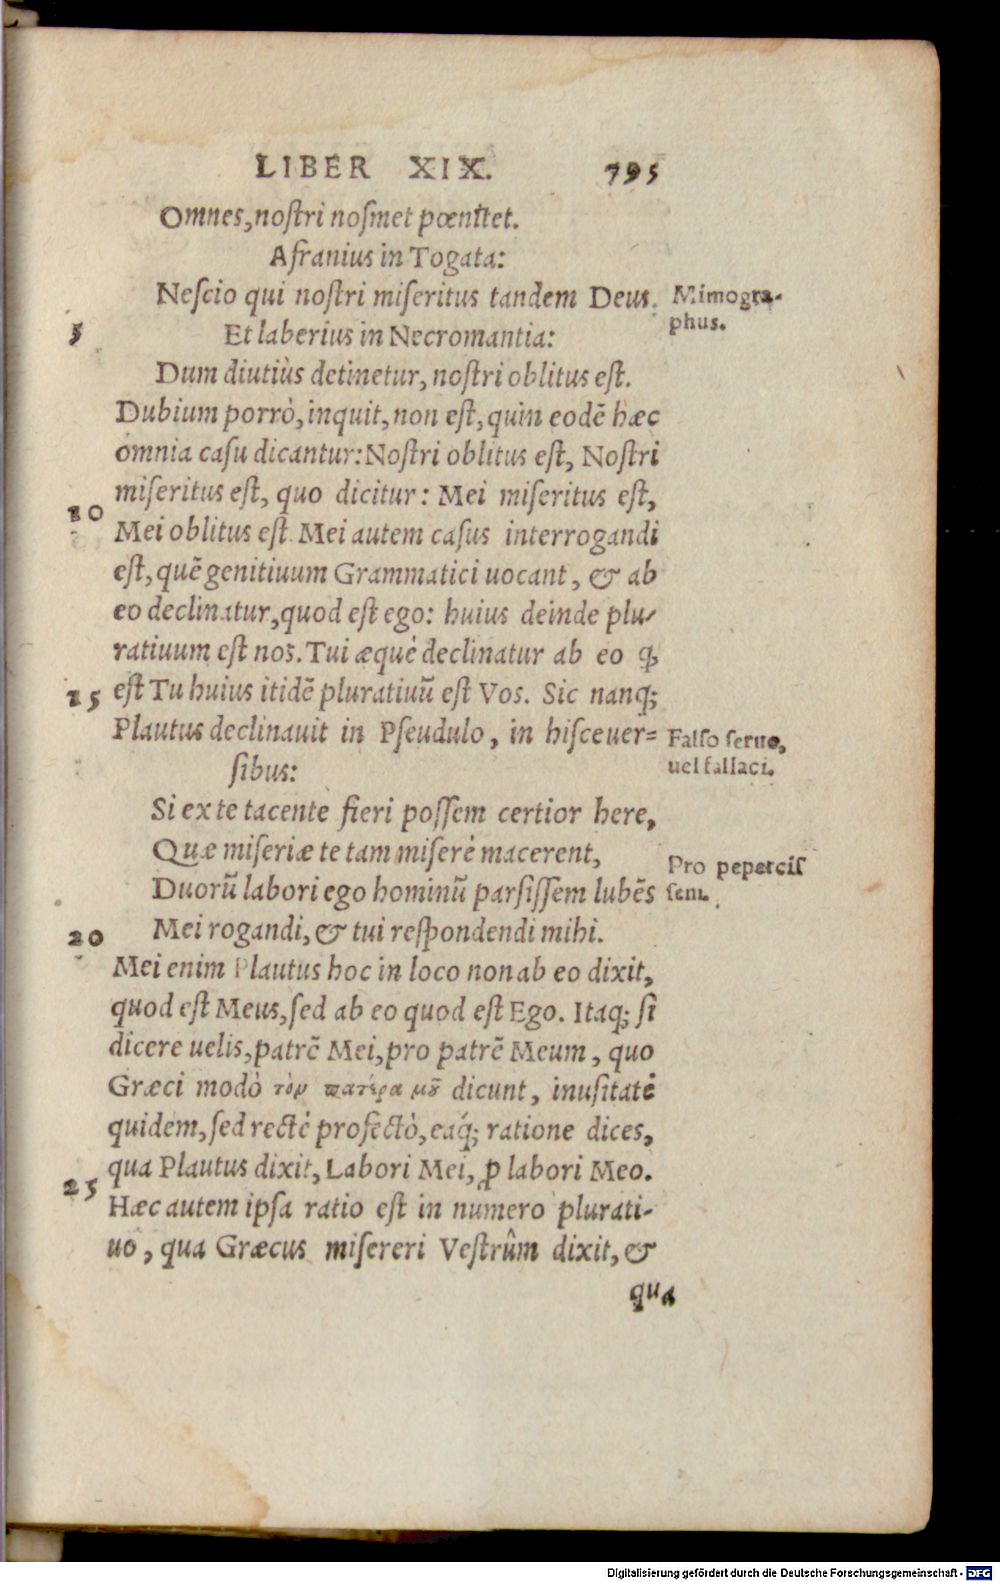 LIBER XIX. 795
Omnes, noſtri noſmet pœnitet.
Afranius in Togata:
Neſcio qui noſtri miſeritus tandem Deus. Mimogra-
phus.
5 Et laberius in Necromantia:
Dum diutiùs detinetur, noſtri oblitus eſt.
Dubium porrò, inquit, non eſt, quin eodē hæc
omnia caſu dicantur: Noſtri oblitus eſt, Noſtri
miſeritus eſt, quo dicitur: Mei miſeritus eſt,
10 Mei oblitus eſt. Mei autem caſus interrogandi
eſt, quē genitiuum Grammatici uocant, & ab
eo declinatur, quod eſt ego: huius deinde plu-
ratiuum eſt nos. Tui æquè declinatur ab eo q̃,
15 eſt Tu huius itidē pluratiuū eſt Vos. Sic nanq;
Plautus declinauit in Pſeudulo, in hiſceuer= Falſo ſeruo,
uel fallaci.
ſibus:
Si ex te tacente fieri poſſem certior here,
Quæ miſeriæ te tam miſerè macerent, Pro peperciſ
ſem.
Duorū labori ego hominū parſiſſem lubēs
20 Mei rogandi, & tui reſpondendi mihi.
Mei enim Plautus hoc in loco non ab eo dixit,
quod eſt Meus, ſed ab eo quod eſt Ego. Itaq; ſi
dicere uelis, patrē Mei, pro patrē Meum, quo
Græci modò τὸν πατέρα μȣ̃ dicunt, inuſitatè
quidem, ſed rectè profectò, eaq́; ratione dices,
qua Plautus dixit, Labori Mei, ꝓ labori Meo.
25 Hæc autem ipſa ratio eſt in numero plurati-
uo, qua Græcus miſereri Veſtrûm dixit, &
qua
Digitalisierung gefördert durch die Deutsche Forschungsgemeinschaft - DFG